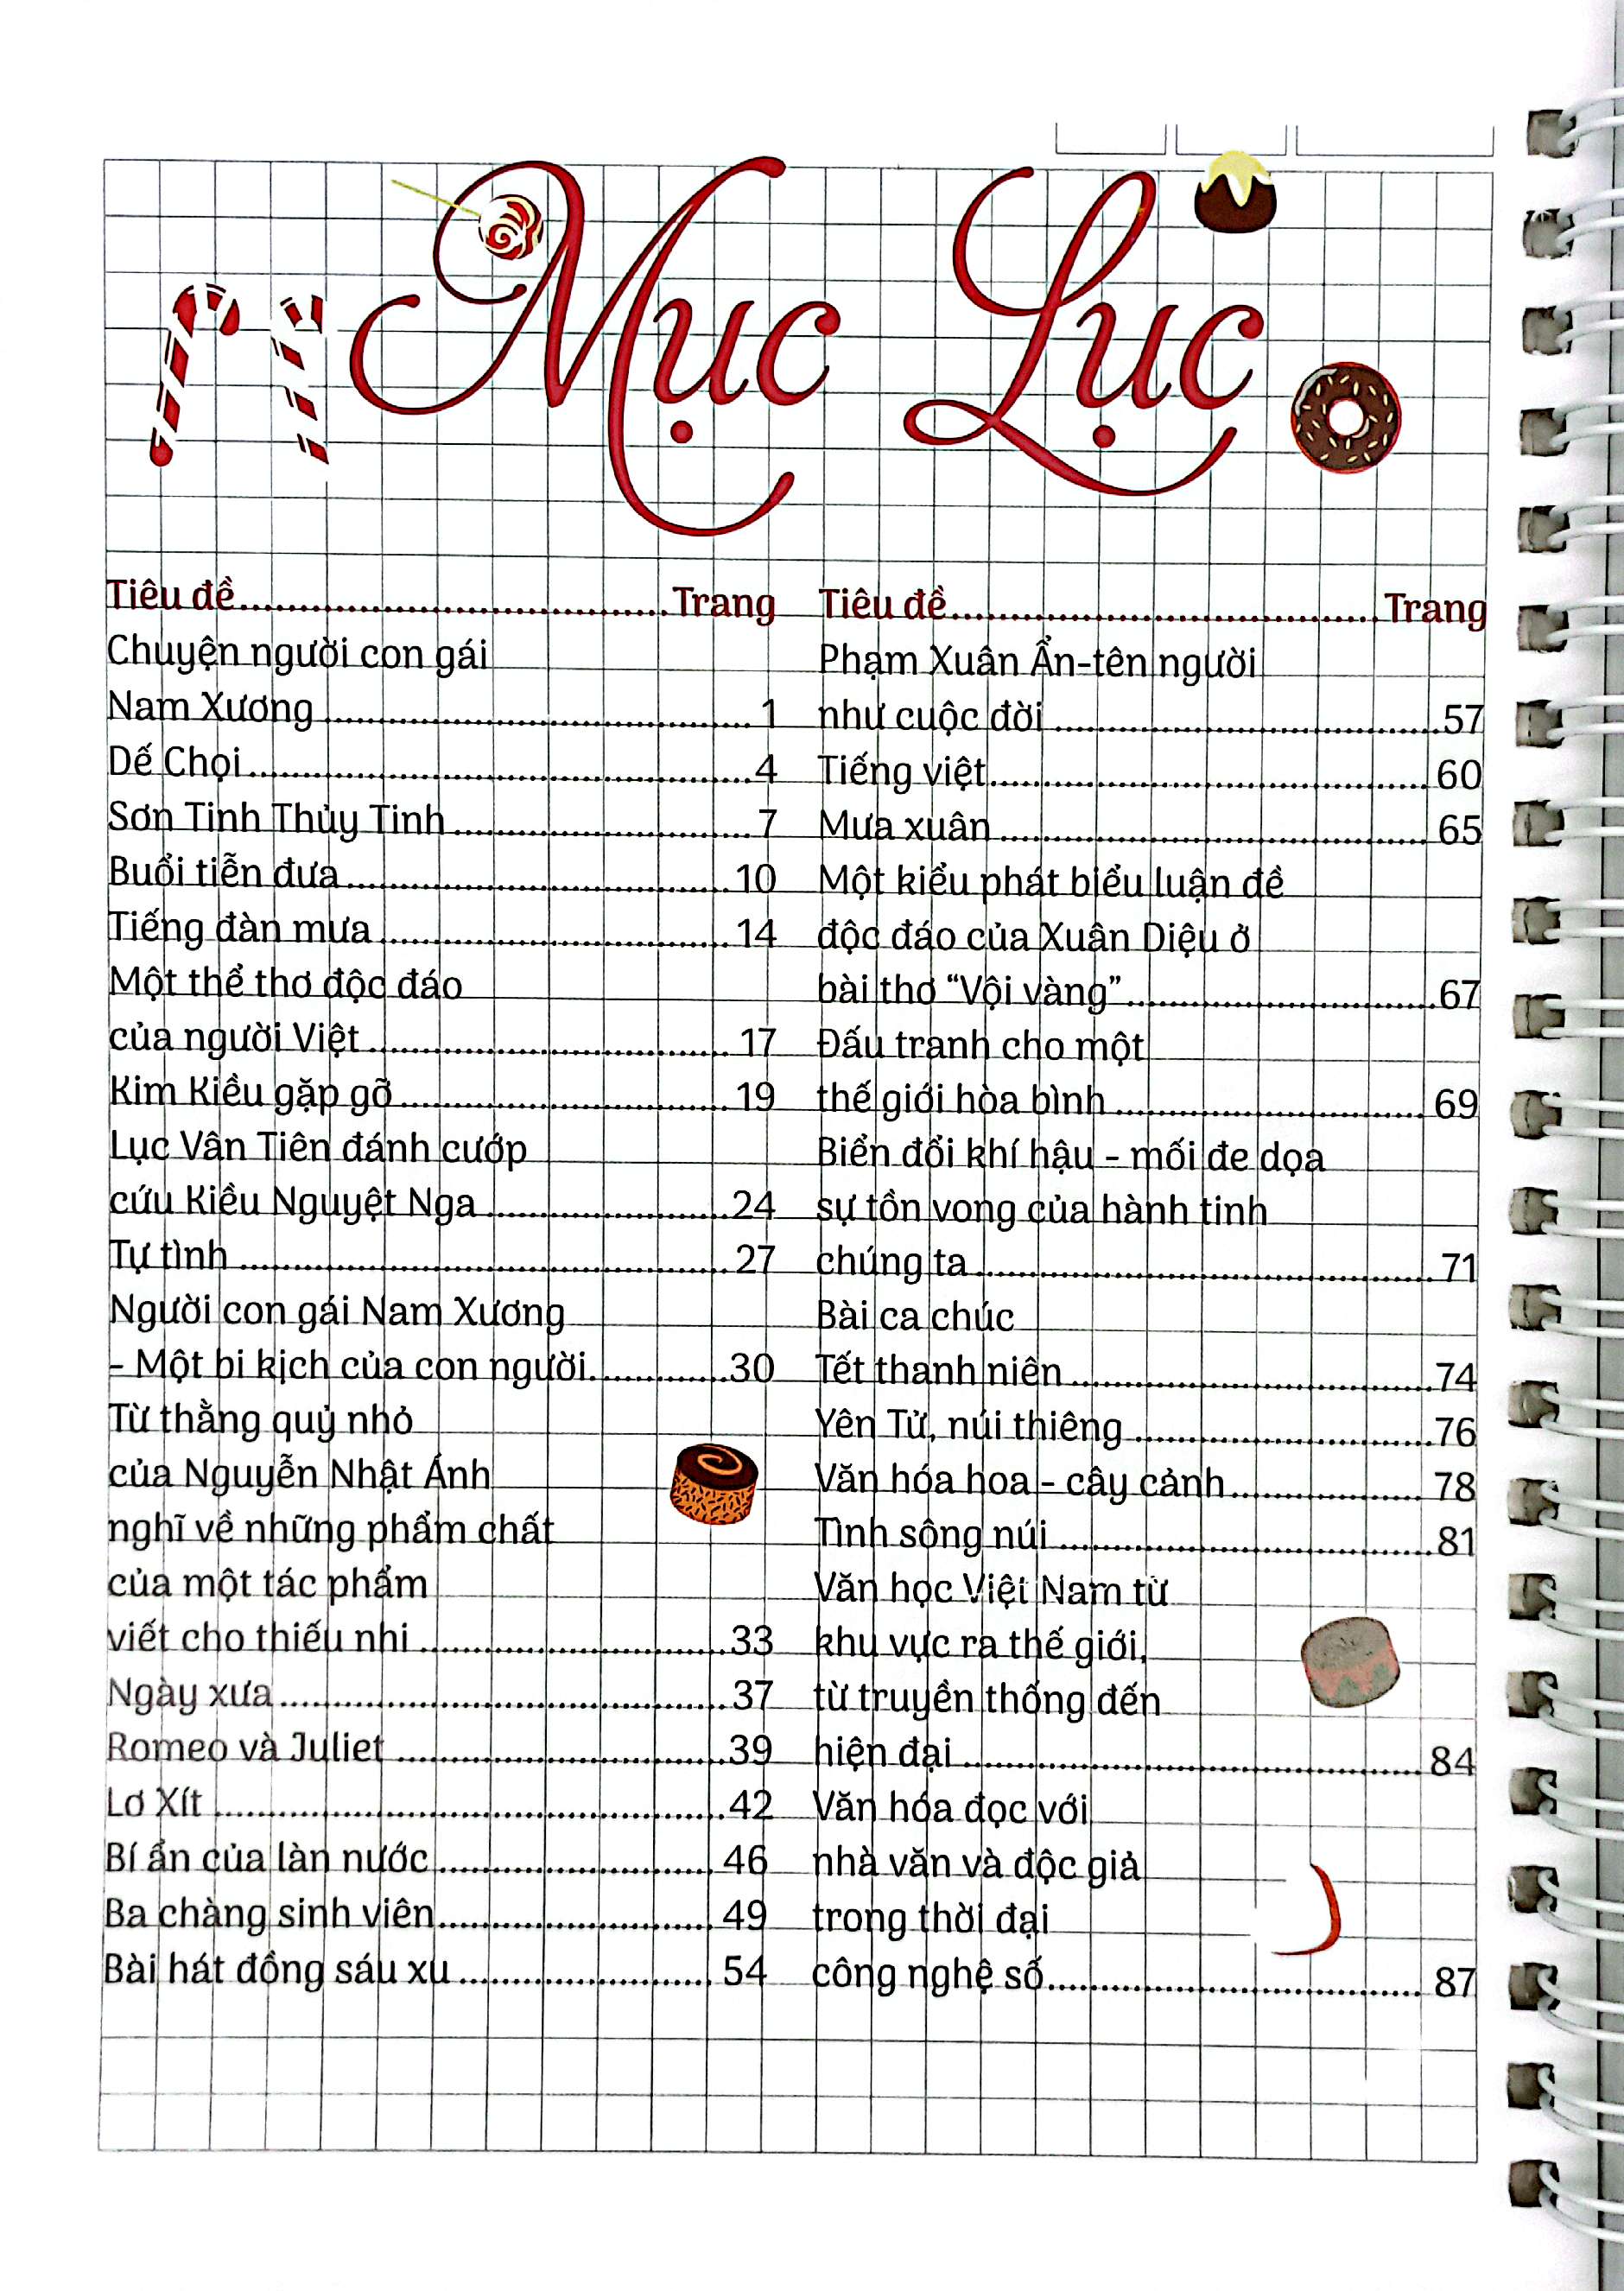 Mục Lục
Tiêu đề.....Trang
Chuyện người con gái
Nam Xương.....1
Dế Chọi.....4
Sơn Tinh Thủy Tinh.....7
Buổi tiễn đưa.....10
Tiếng đàn mưa.....14
Một thể thơ độc đáo
của người Việt.....17
Kim Kiều gặp gỡ.....19
Lục Vân Tiên đánh cướp
cứu Kiều Nguyệt Nga.....24
Tự tình.....27
Người con gái Nam Xương
- Một bi kịch của con người.....30
Từ thằng quỷ nhỏ
của Nguyễn Nhật Ánh
nghĩ về những phẩm chất
của một tác phẩm
viết cho thiếu nhi.....33
Ngày xưa.....37
Romeo và Juliet.....39
Lơ Xít.....42
Bí ẩn của làn nước.....46
Ba chàng sinh viên.....49
Bài hát đồng sáu xu.....54
Tiêu đề.....Trang
Phạm Xuân Ẩn-tên người
như cuộc đời.....57
Tiếng việt.....60
Mưa xuân.....65
Một kiểu phát biểu luận đề
độc đáo của Xuân Diệu ở
bài thơ “Vội vàng”.....67
Đấu tranh cho một
thế giới hòa bình.....69
Biển đổi khí hậu - mối đe dọa
sự tồn vong của hành tinh
chúng ta.....71
Bài ca chúc
Tết thanh niên.....74
Yên Tử, núi thiêng.....76
Văn hóa hoa - cây cảnh.....78
Tình sông núi.....81
Văn học Việt Nam từ
khu vực ra thế giới,
từ truyền thống đến
hiện đại.....84
Văn hóa đọc với
nhà văn và độc giả
trong thời đại
công nghệ số.....87